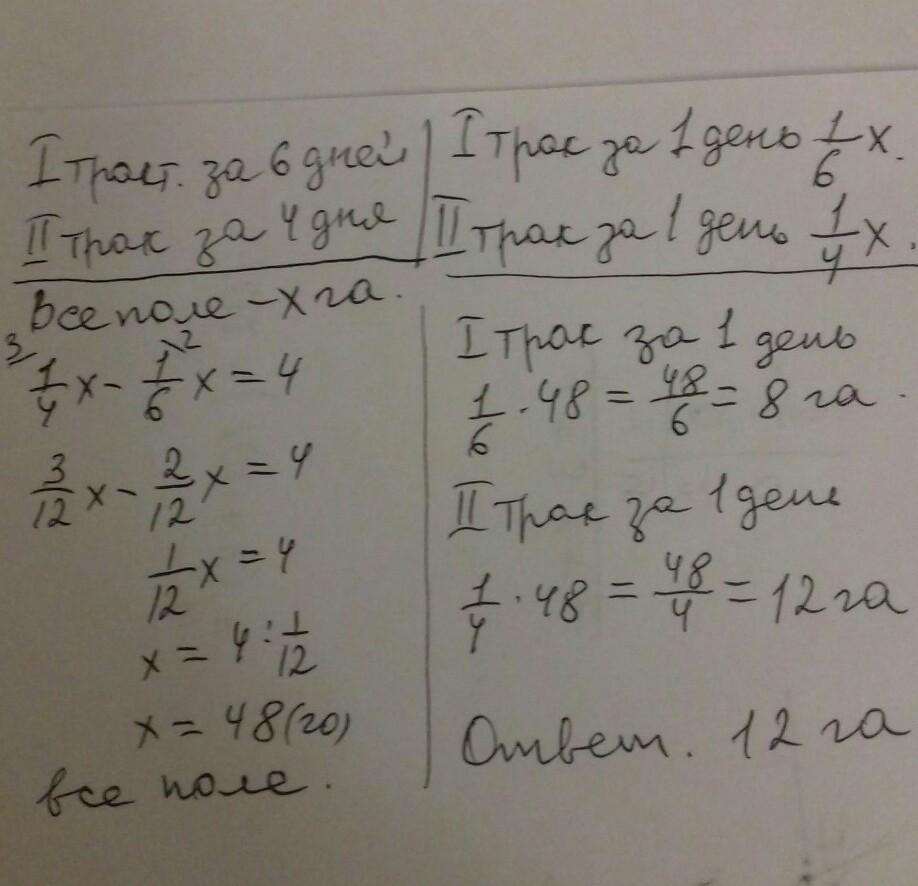 I тракт. за 6 дней
II трак за 4 дня
Все поле – х га.
1/4 х – 1/6 х = 4
3 2
3/12 х – 2/12 х = 4
1/12 х = 4
х = 4 : 1/12
х = 48 (га)
все поле.
I трак за 1 день 1/6 х.
II трак за 1 день 1/4 х.
I трак за 1 день
1/6 · 48 = 48/6 = 8 га.
II трак за 1 день
1/4 · 48 = 48/4 = 12 га
Ответ. 12 га